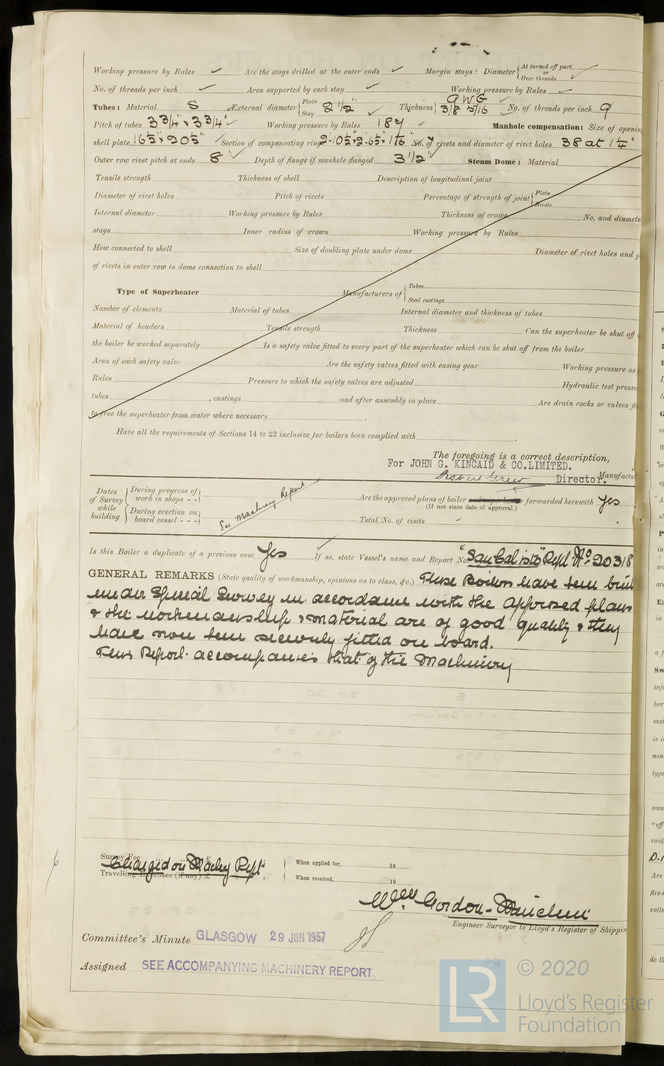 Working pressure by Rules ✓ Are the stays drilled at the outer ends ✓ Margin stays: Diameter { At turned off part, or Over threads ✓
No. of threads per inch ✓ Area supported by each stay ✓ Working pressure by Rules ✓
Tubes: Material S External diameter { Plain Stay 2 1/2" Thickness { 9 WG 3/8 5/16 No. of threads per inch 9
Pitch of tubes 3 3/4" x 3 3/4" Working pressure by Rules 184 Manhole compensation: Size of openin
shell plate 16 1/2" x 20 1/2" Section of compensating ring No. of rivets and diameter of rivet holes 38 at 1 1/4"
Outer row rivet pitch at ends 8" Depth of flange if manhole flanged 3 1/2" Steam Dome: Material
Tensile strength Thickness of shell Description of longitudinal joint
Diameter of rivet holes Pitch of rivets Percentage of strength of joint { Plate Rivets
Internal diameter Working pressure by Rules Thickness of crown No. and diamete
stays Inner radius of crown Working pressure by Rules
How connected to shell Size of doubling plate under dome Diameter of rivet holes and p
of rivets in outer row in dome connection to shell
Type of Superheater Manufacturers of { Tubes Steel castings
Number of elements Material of tubes Internal diameter and thickness of tubes
Material of headers Tensile strength Thickness Can the superheater be shut off
the boiler be worked separately Is a safety valve fitted to every part of the superheater which can be shut off from the boiler
Area of each safety valve Are the safety valves fitted with easing gear Working pressure as
Rules Pressure to which the safety valves are adjusted Hydraulic test press
tubes , castings and after assembly in place Are drain cocks or valves fi
to free the superheater from water where necessary
Have all the requirements of Sections 14 to 22 inclusive for boilers been complied with
The foregoing is a correct description,
For JOHN G. KINCAID & CO. LIMITED.
Director. Manufactu
Dates of Survey while building { During progress of work in shops - - } { During erection on board vessel - - - } See Machinery Report
Are the approved plans of boiler forwarded herewith Yes
(If not state date of approval.)
Total No. of visits
Is this Boiler a duplicate of a previous case Yes If so, state Vessel's name and Report No. "San Calisto" Rept No. 20318
GENERAL REMARKS (State quality of workmanship, opinions as to class, &c.) These Boilers have been built
under Special Survey in accordance with the approved plans
& the workmanship & material are of good quality & they
have now been securely fitted on board.
This Report accompanies that of the Machinery
Survey Fee Charged on Machy Rept. When applied for, 19
Travelling Expenses (if any) £ : : When received, 19
Wm Gordon-
Engineer Surveyor to Lloyd's Register of Shippin
Committee's Minute GLASGOW 29 JUN 1937
Assigned SEE ACCOMPANYING MACHINERY REPORT
LR © 2020
Lloyd's Register
Foundation